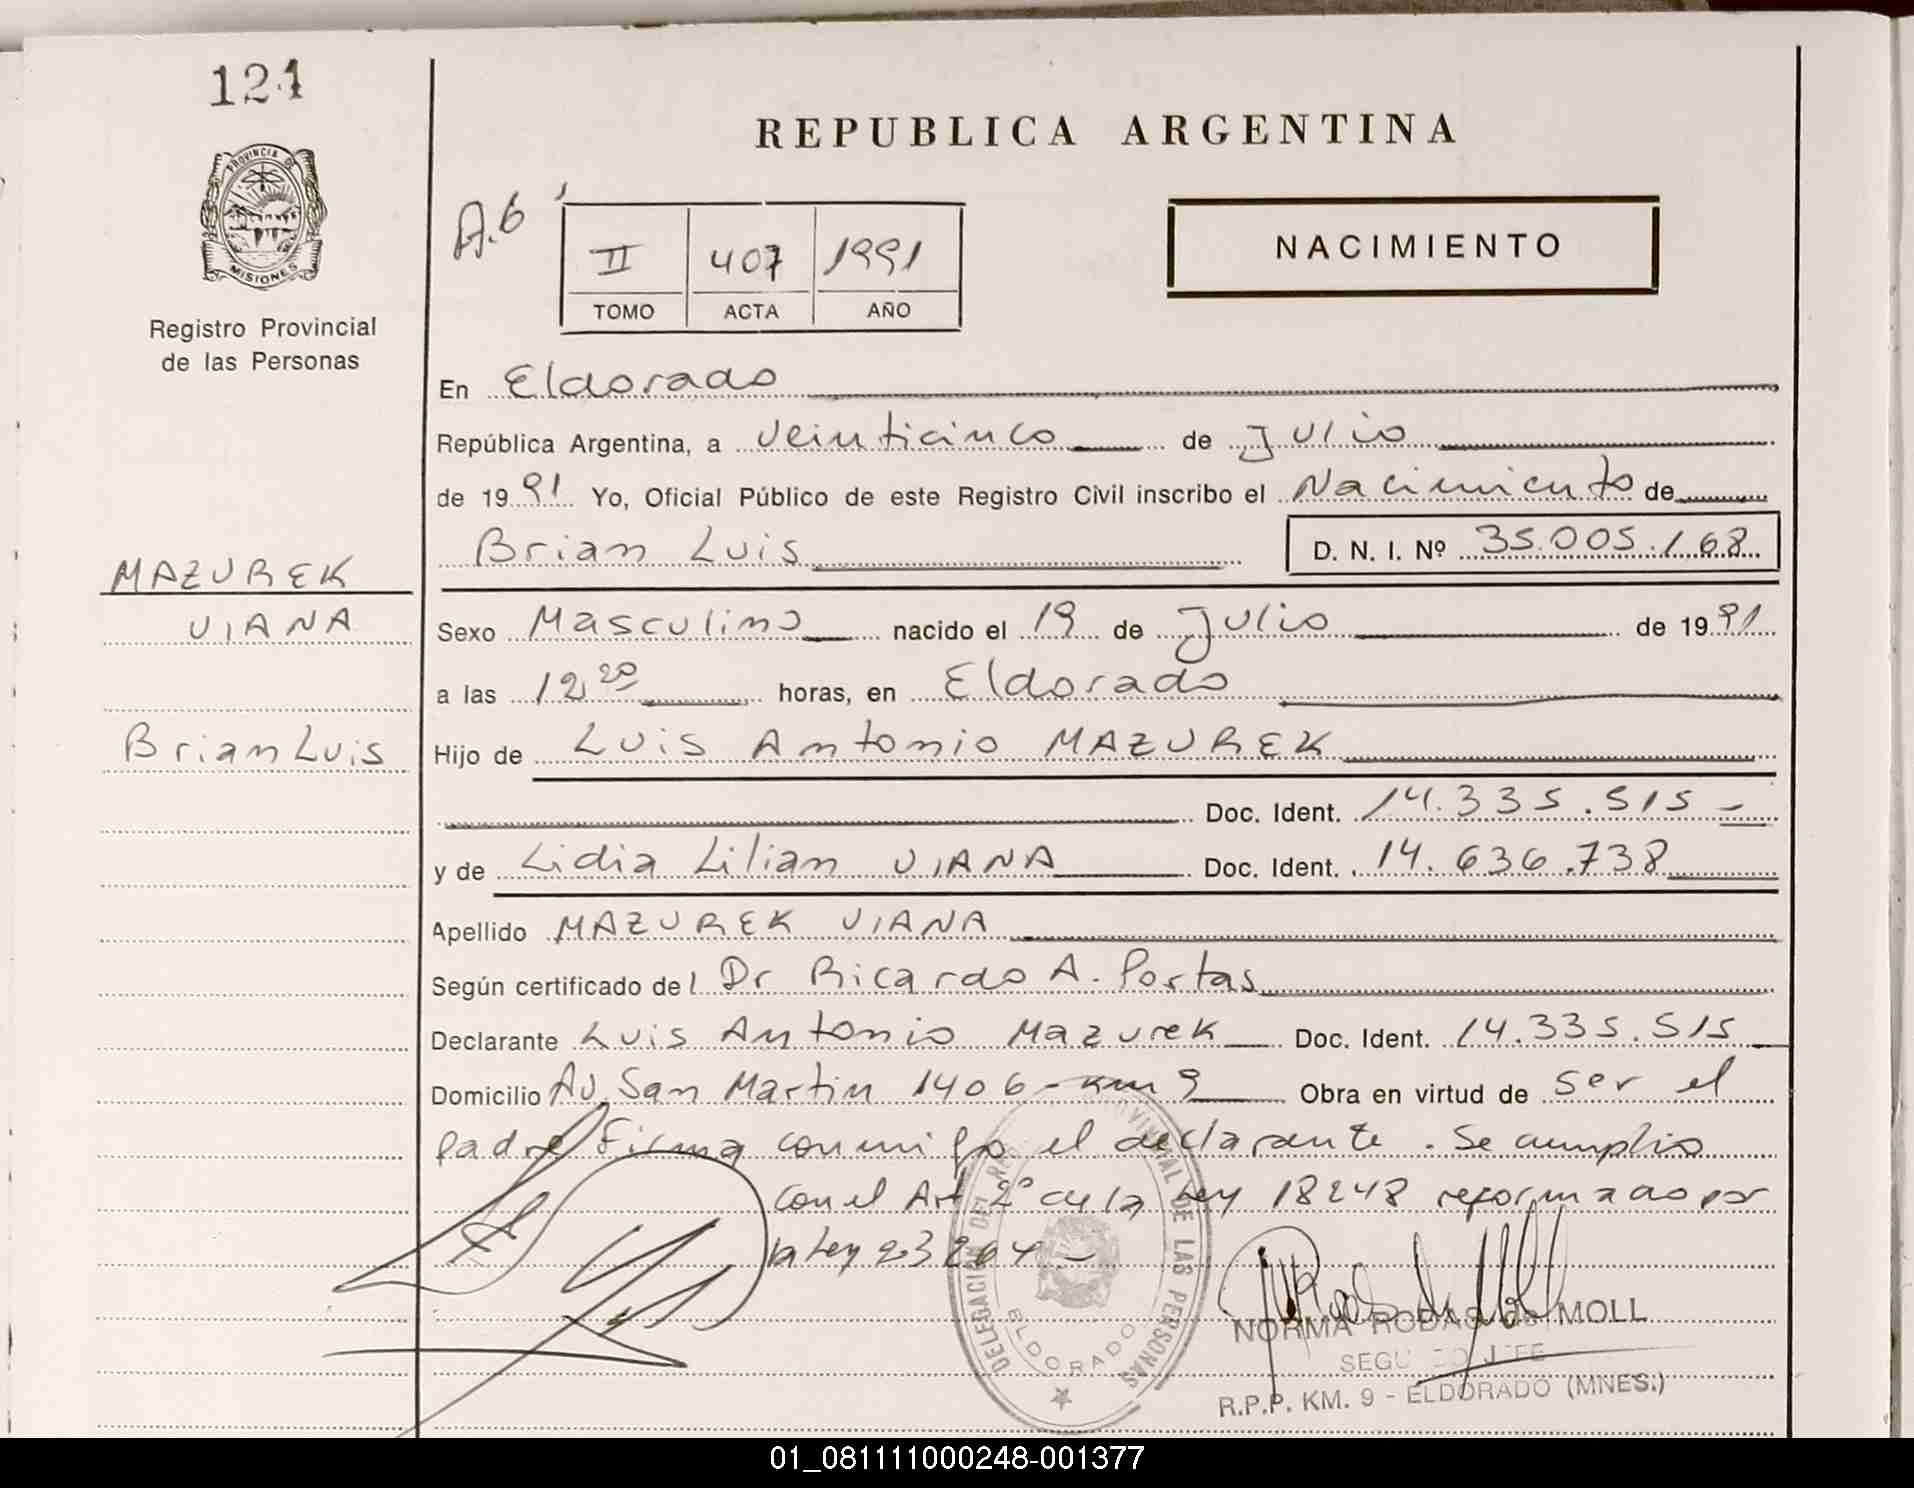 124
REPUBLICA ARGENTINA
PROVINCIA DE
MISIONES
Registro Provincial
de las Personas
A.6
II 407 1991
TOMO ACTA AÑO
NACIMIENTO
En Eldorado
República Argentina, a Veinticinco de Julio
de 1991 Yo, Oficial Público de este Registro Civil inscribo el Nacimiento de
Brian Luis D. N. I. Nº 35.005.168
MAZUREK
VIANA
Brian Luis
Sexo Masculino nacido el 19 de Julio de 1991
a las 12,20 horas, en Eldorado
Hijo de Luis Antonio MAZUREK
Doc. Ident. 14.335.515 -
y de Lidia Lilian VIANA Doc. Ident. 14.636.738
Apellido MAZUREK VIANA
Según certificado del Dr Ricardo A. Portas
Declarante Luis Antonio Mazurek Doc. Ident. 14.335.515
Domicilio Av. San Martin 1406 - Km 9 Obra en virtud de ser el
padre Firma conmigo el declarante. Se cumplio
con el Art 2° de la Ley 18248 reformado por
la Ley 23264 -
DELEGACION DEL REG PROVINCIAL DE LAS PERSONAS
ELDORADO
NORMA RODAS de MOLL
SEGUNDO JEFE
R.P.P. KM. 9 - ELDORADO (MNES.)
01_081111000248-001377